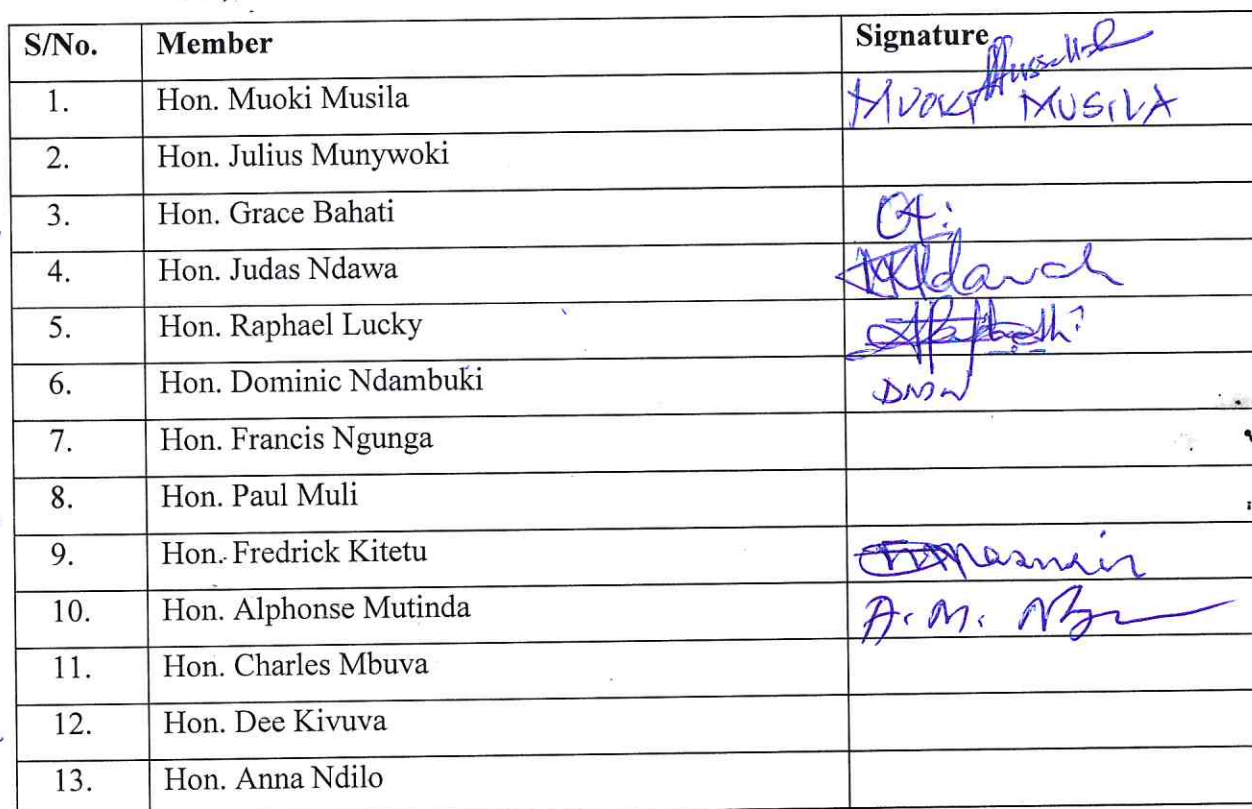 S/No. Member Signature
1. Hon. Muoki Musila MUOKI MUSILA
2. Hon. Julius Munywoki
3. Hon. Grace Bahati
4. Hon. Judas Ndawa
5. Hon. Raphael Lucky
6. Hon. Dominic Ndambuki
7. Hon. Francis Ngunga
8. Hon. Paul Muli
9. Hon. Fredrick Kitetu
10. Hon. Alphonse Mutinda A. M.
11. Hon. Charles Mbuva
12. Hon. Dee Kivuva
13. Hon. Anna Ndilo